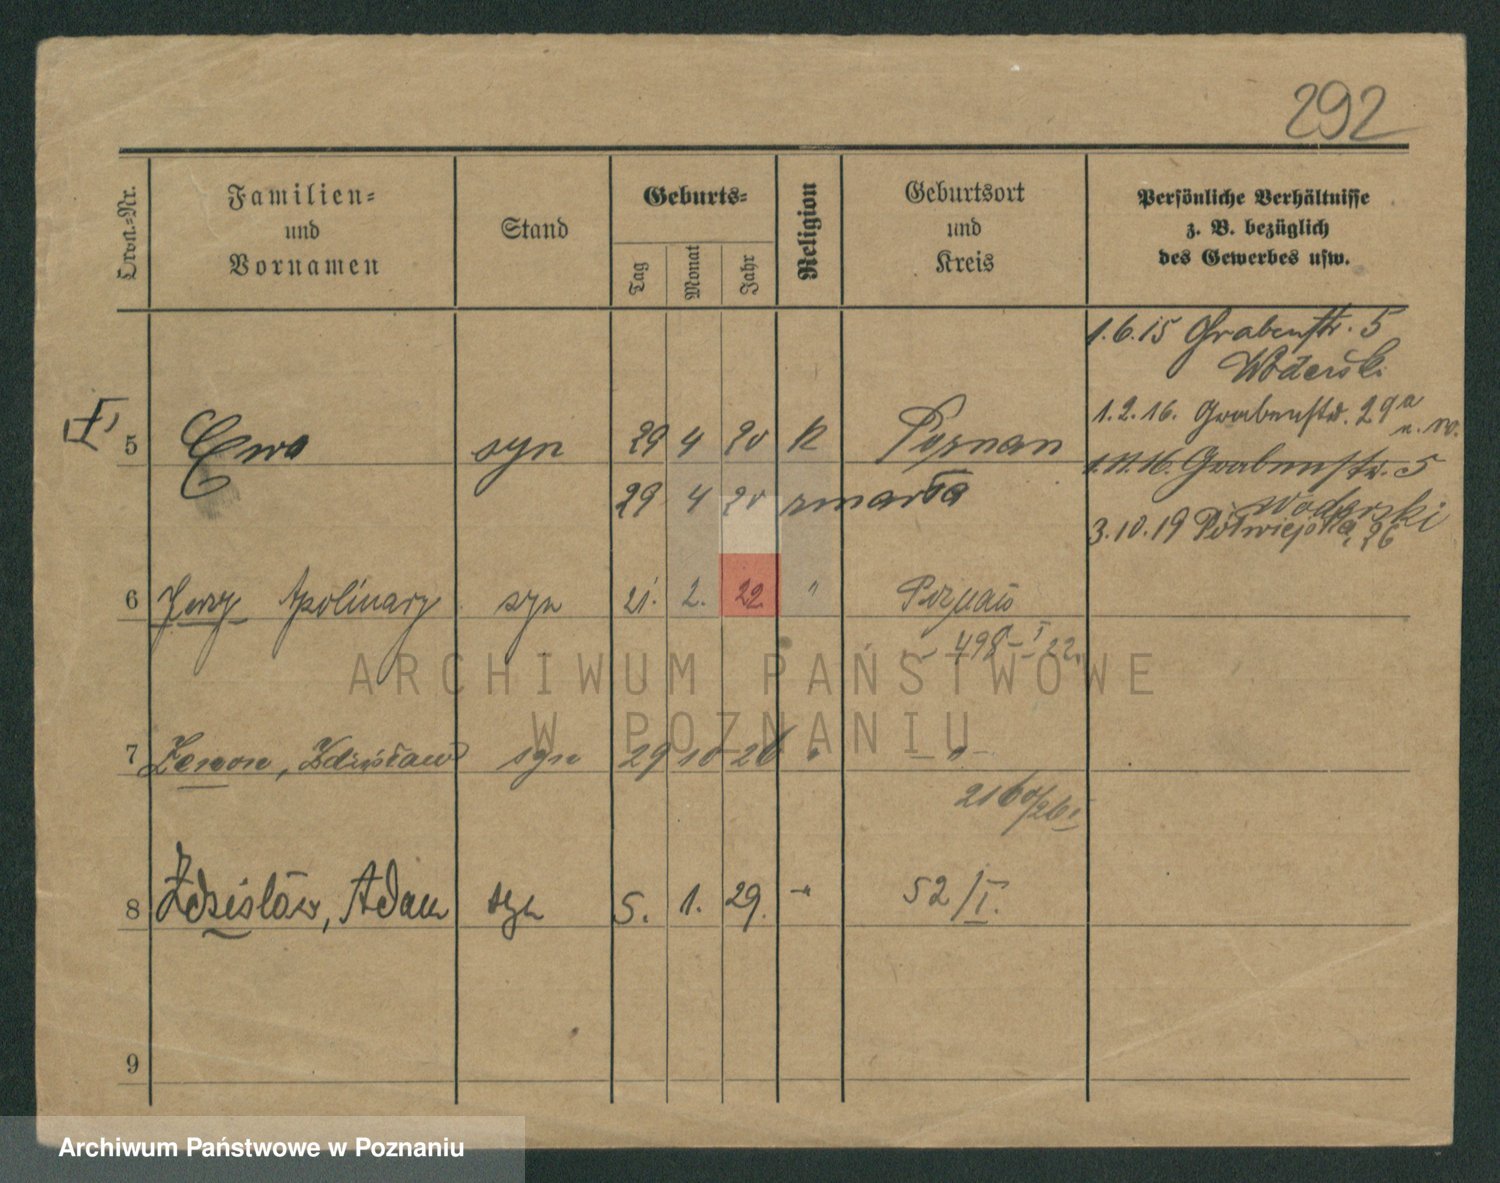 292
Ordn.-Nr.
Familien-
und
Vornamen
Stand
Geburts-
Tag
Monat
Jahr
Religion
Geburtsort
und
Kreis
Persönliche Verhältnisse
z. B. bezüglich
des Gewerbes usw.
1.6.15 Grabenstr. 5
Woderski
1.2.16. Grabenstr. 29a
5 Ewa syn 29 4 20 K Poznan
1.11.16. Grabenstr. 5
Woderski
29 4 20 zmarła
3.10.19 Półwiejska 26
6 Jerzy Apolinary syn 21. 2. 22. " Poznań
498 I 22.
ARCHIWUM PAŃSTWOWE
W POZNANIU
7 Zenon, Zdzisław syn 29 10 26 " - " -
2160/26 I
8 Zdzisław, Adam syn 5. 1. 29. -"- 52/I.
9
Archiwum Państwowe w Poznaniu